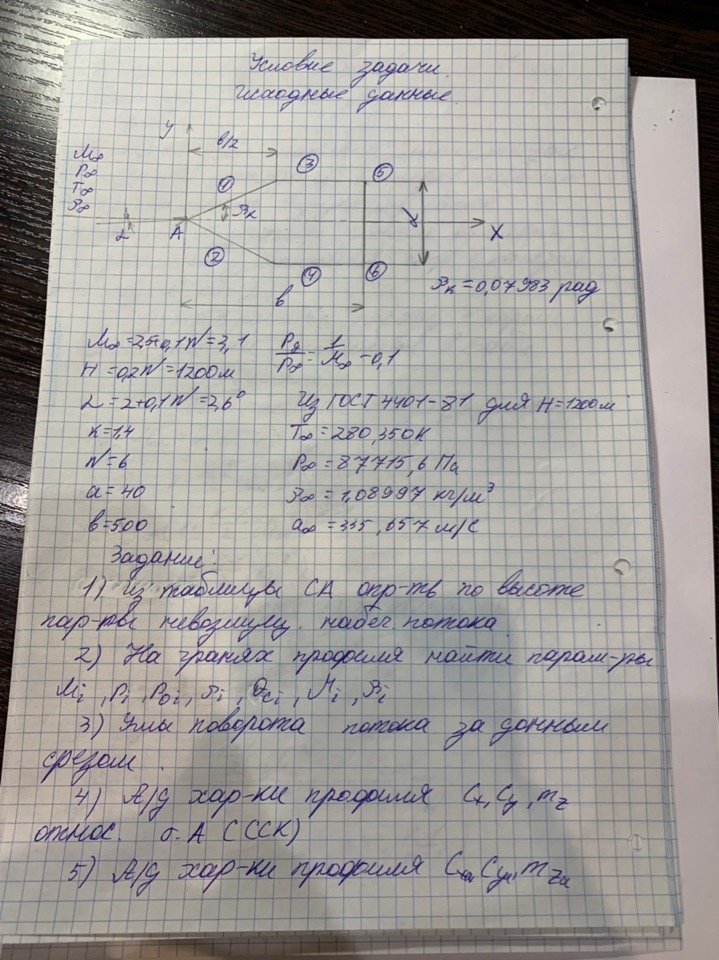 Условие задачи.
Исходные данные.
y
b/2
M∞
P∞
T∞
ρ∞
1
3
5
βk
A
2
4
6
X
b
βк=0,07983 рад
M∞=2,5+0,1N=3,1
Pд/P∞=1/M∞-0,1
H=0,2N=1200м
α=2+0,1N=2,6°
Из ГОСТ 4401-81 для H=1200м
k=1,4
T∞=280,350К
N=6
P∞=87715,6 Па
a=40
ρ∞=1,08997 кг/м³
b=500
a∞=335,657 м/с
Задание:
1) Из таблицы СА опр-ть по высоте
пар-ры невозмущ. набег. потока
2) На гранях профиля найти парам-ры
Mi, Pi, P0i, ρi,
3) Углы поворота потока за донным
срезом.
4) А/д хар-ки профиля Cx, Cy, mz
относ. т. А (ССК)
5) А/д хар-ки профиля Cxa Cya, mza